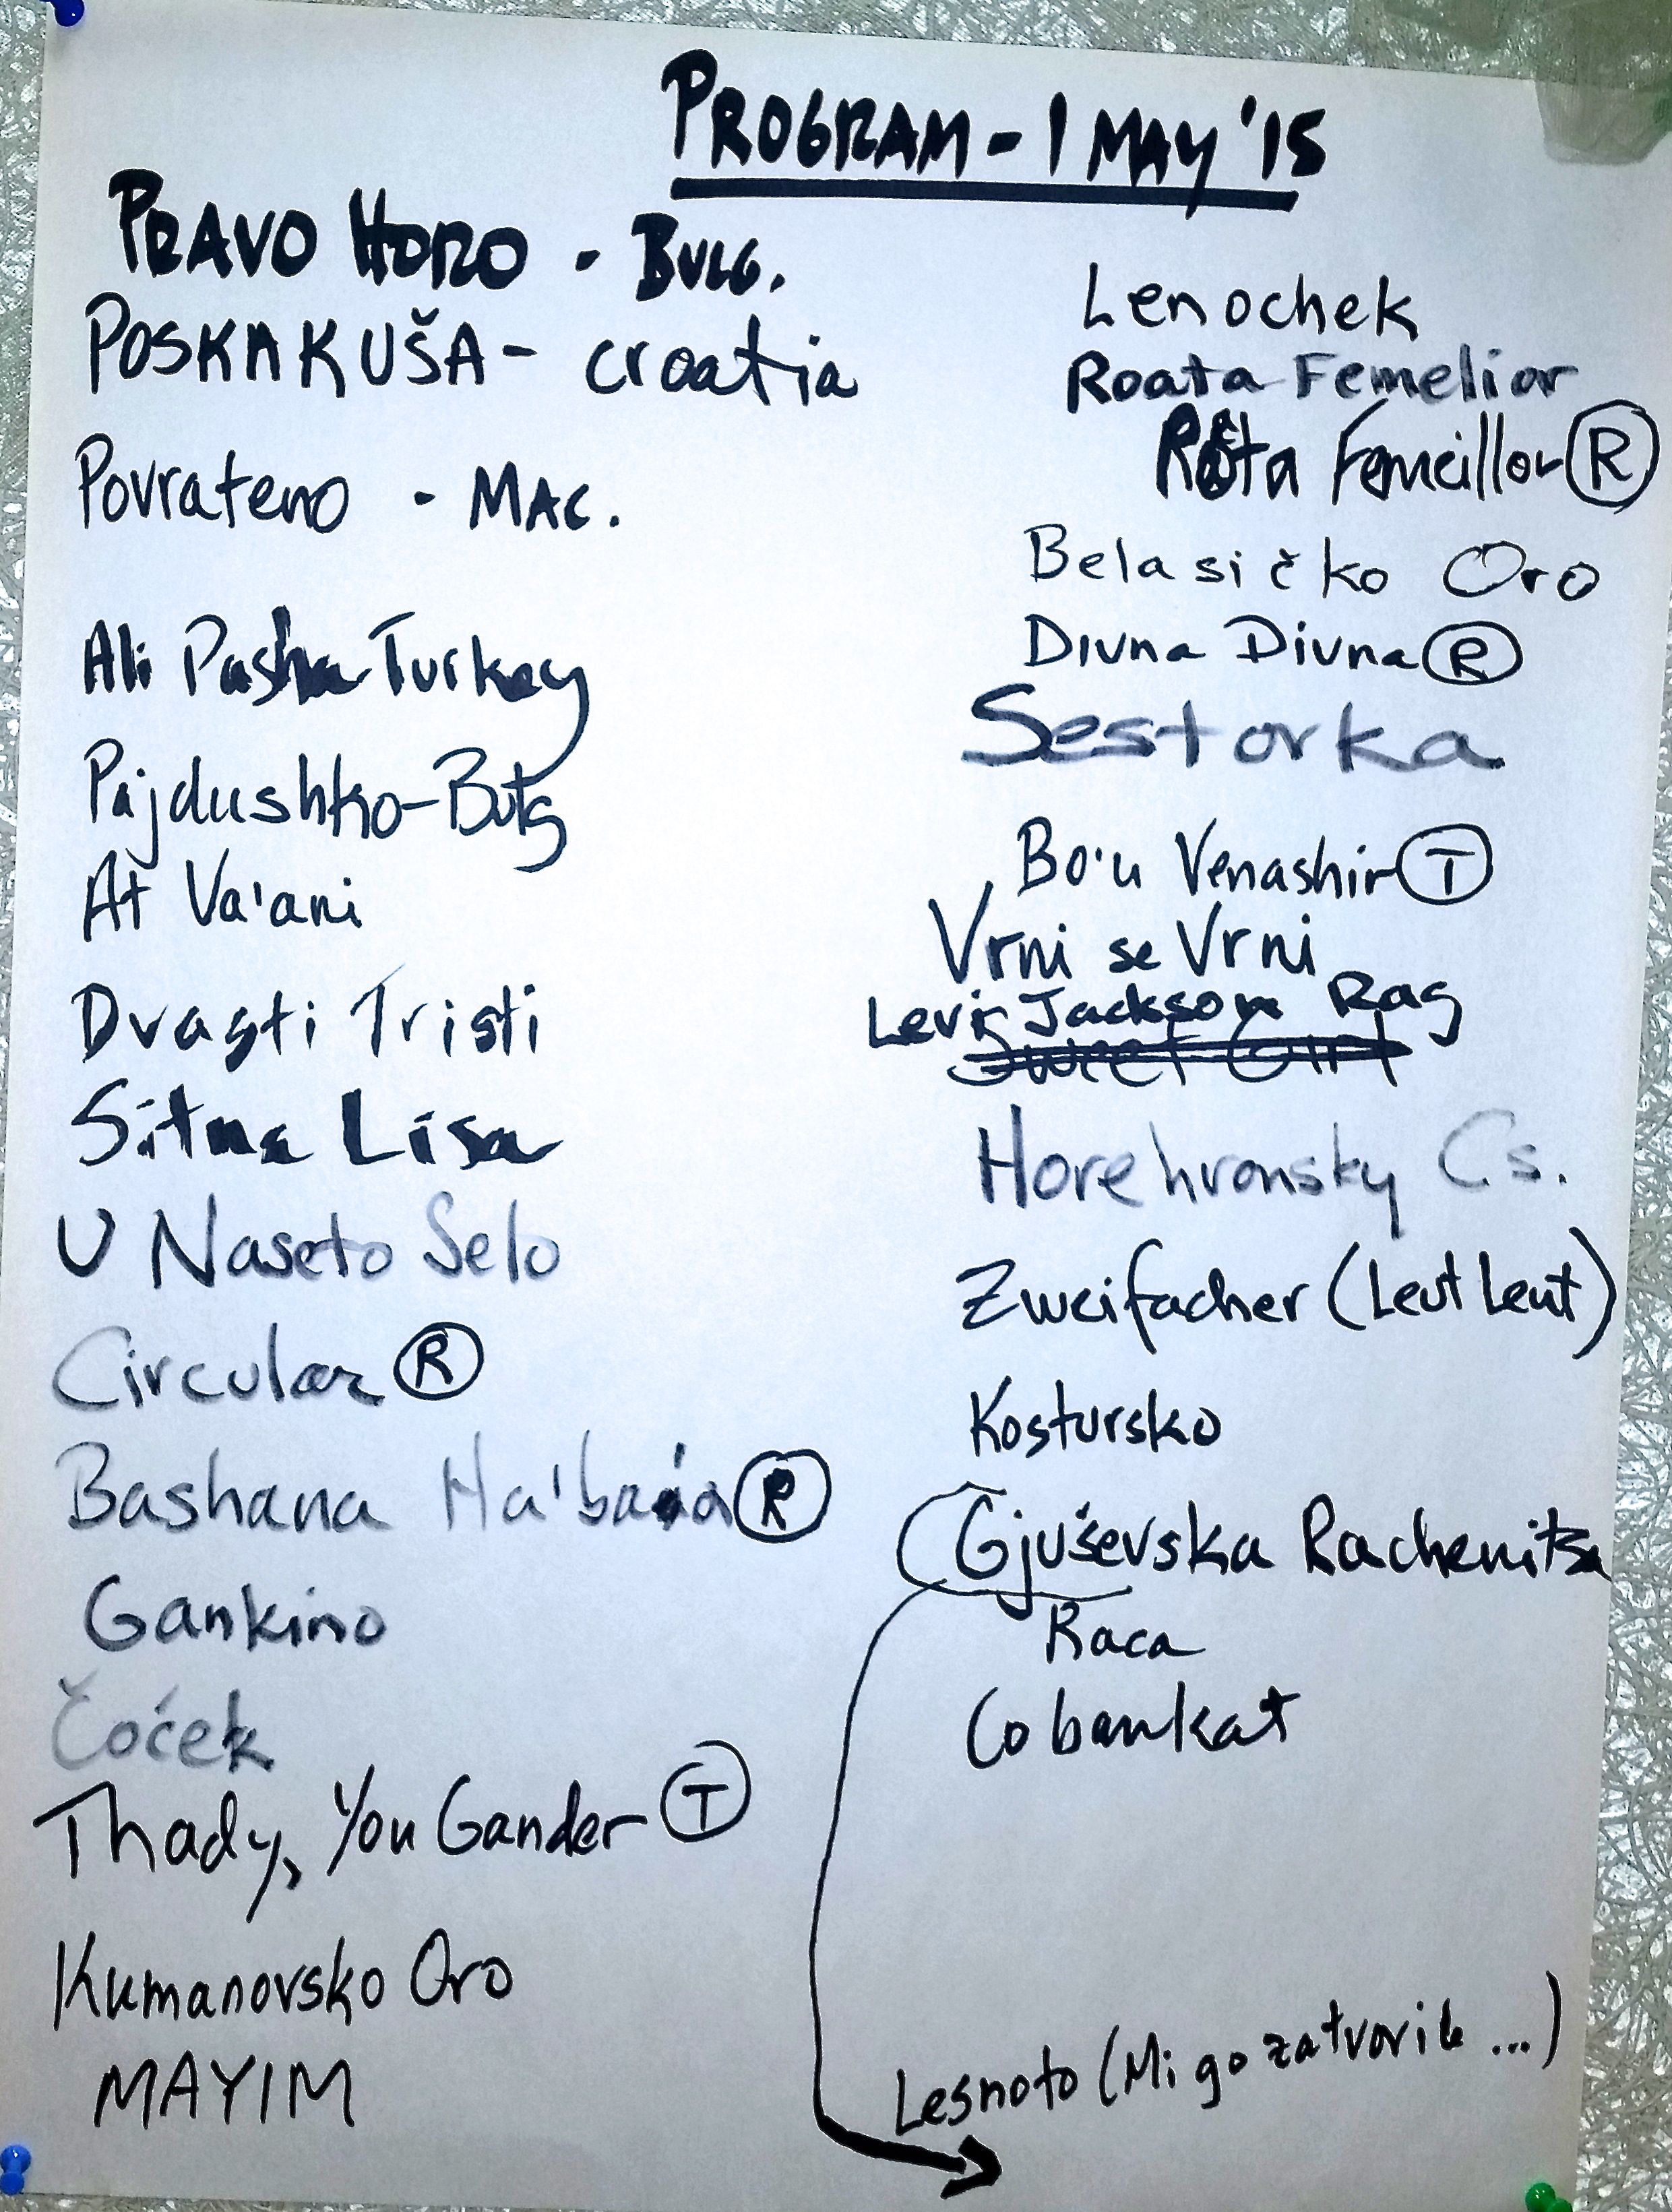 PROGRAM - 1 MAY '15
PRAVO HORO - BULG.
POSKAKUŠA - croatia
Povrateno - MAC.
Ali Pasha Turkey
Pajdushko-Bulg
At Va'ani
Dvasti Tristi
Sitna Lisa
U Naseto Selo
Circular Ⓡ
Bashana Ha'ba'a Ⓡ
Gankino
Čoček
Thady, You Gander Ⓣ
Kumanovsko Oro
MAYIM
Lenochek
Roata Femelior
Rata Femeillor Ⓡ
Belasičko Oro
Divna Divna Ⓡ
Sestorka
Bo'u Venashir Ⓣ
Vrni se Vrni
Levi Jackson Rag
Sweet Girl
Horehronsky Cs.
Zweifacher (Leut Leut)
Kostursko
(Gjuševska Rachenitsa
Raca
Cobankat
Lesnoto (Mi go zatvorile ...)